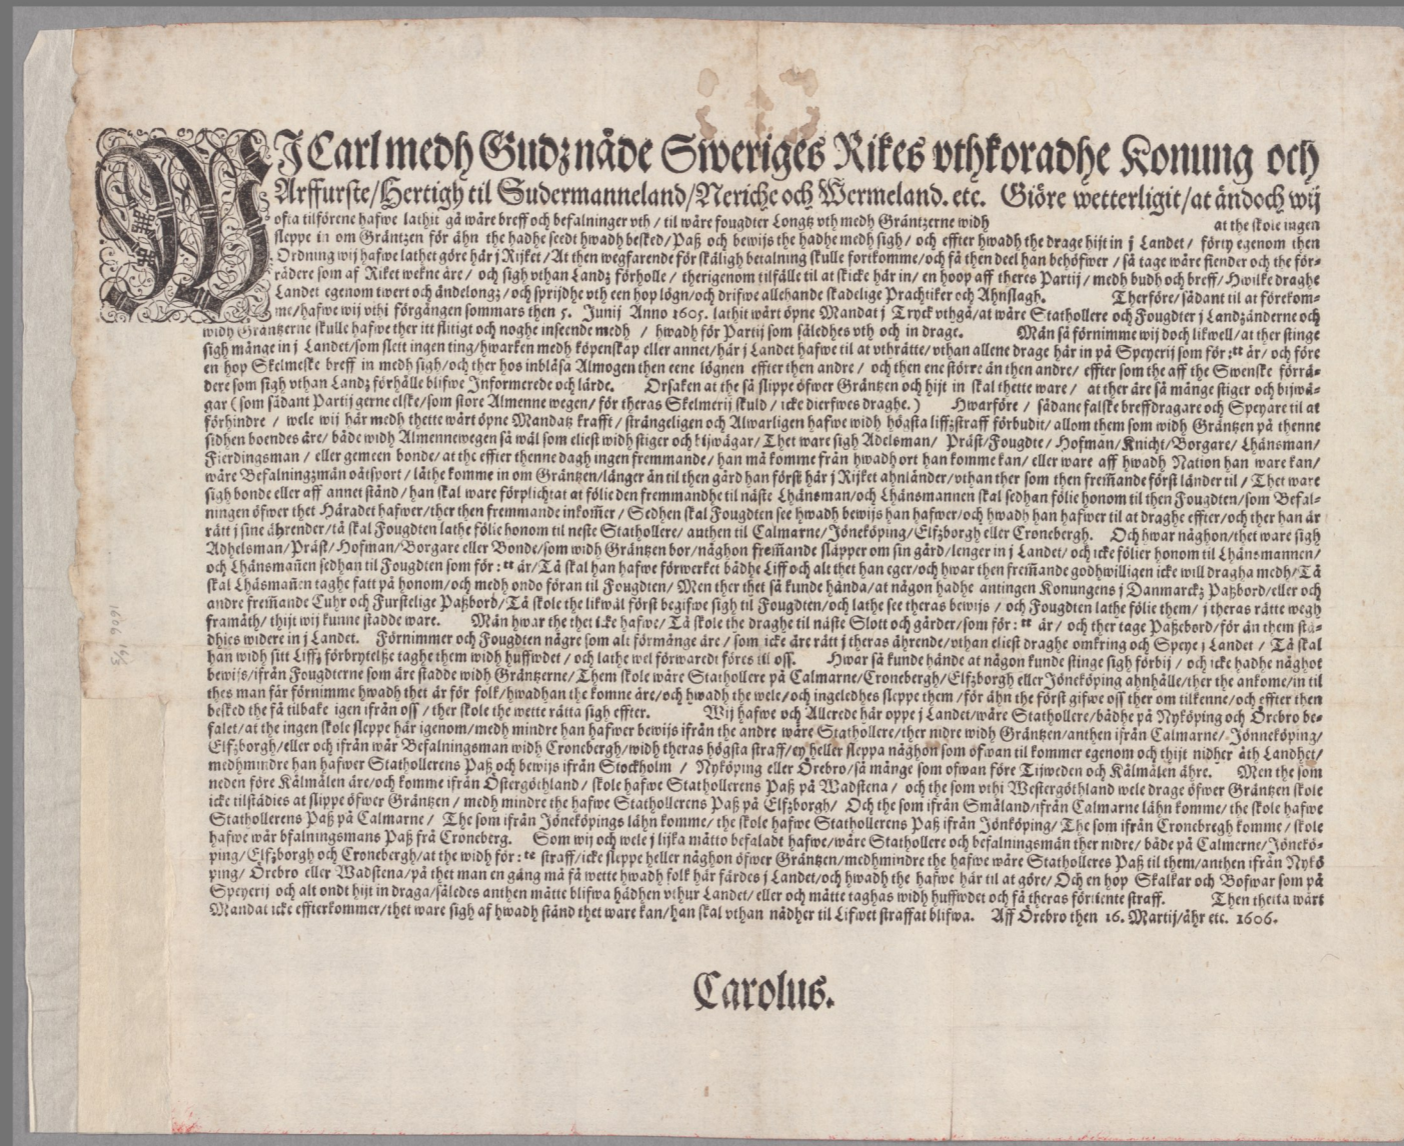 WJ Carl medh Gudz nåde Sweriges Rikes vthkoradhe Konung och
Arffurste/Hertigh til Sudermanneland/Neriche och Wermeland. etc. Giöre wetterligit/at ändoch wij
ofta tilförene hafwe lathit gå wåre breff och befalninger vth / til wåre fougdter Longtz vth medh Gräntzerne widh at the skole ingen
sleppe in om Gräntzen för ähn the hadhe seedt hwadh besked/Paß och bewijs the hadhe medh sigh/ och effter hwadh the drage hijt in j Landet/ förty egenom then
Ordning wij hafwe lathet göre här j Rijket/At then wegfarende för skäligh betalning skulle fortkomme/och få then deel han behöfwer / så tage wåre fiender och the för-
rädere som af Riket wekne äre/ och sigh vthan Landz förholle / therigenom tilfälle til at skicke här in/ en hoop aff theres Partij/ medh budh och breff/Hwilke draghe
Landet egenom twert och ändelongz/och sprijdhe vth een hop lögn/och drifwe allehande skadelige Prachtiker och Ahnslagh. Therföre/sådant til at förekom-
me/hafwe wij vthi förgången sommars then 5. Junij Anno 1605. lathit wårt öpne Mandat j Tryck vthgå/at wåre Stathollere och Fougdter j Landzänderne och
widh Gräntzerne skulle hafwe ther itt flitigt och noghe inseende medh / hwadh för Partij som såledhes vth och in drage. Män så förnimme wij doch likwell/at ther stinge
sigh månge in j Landet/som slett ingen ting/hwarken medh köpenskap eller annet/här j Landet hafwe til at vthrätte/vthan allene drage här in på Speyerij som för:tt är/ och före
en hop Skelmeske breff in medh sigh/och ther hos inbläsa Almogen then eene lögnen effter then andre/ och then ene större än then andre/ effter som the aff the Swenske förrä-
dere som sigh vthan Landz förhålle blifwe Informerede och lärde. Orsaken at the så slippe öfwer Gräntzen och hijt in skal thette ware / at ther äre så månge stiger och bijwä-
gar (som sådant Partij gerne elske/som store Almenne wegen/ för theras Skelmerij skuld / icke dierfwes draghe.) Hwarföre / sådane falske breffdragare och Speyare til at
förhindre / wele wij här medh thette wårt öpne Mandatz krafft/ strängeligen och Alwarligen hafwe widh högsta liffzstraff förbudit/ allom them som widh Gräntzen på thenne
sidhen boendes äre/ både widh Almennewegen så wäl som eliest widh stiger och bijwägar/ Thet ware sigh Adelsman/ Präst/Fougdte/ Hofman/Knicht/Borgare/ Lhänsman/
Fierdingsman / eller gemeen bonde/at the effter thenne dagh ingen fremmande/ han må komme från hwadh ort han komme kan/ eller ware aff hwadh Nation han ware kan/
wåre Befalningzmän oåtsport/ låthe komme in om Gräntzen/länger än til then gård han först här j Rijket ahnländer/vthan ther som then frem̃ande först länder til / Thet ware
sigh bonde eller aff annet stånd/ han skal ware förplichtat at fölie den fremmandhe til näste Lhänsman/och Lhänsmannen skal sedhan fölie honom til then Fougdten/som Befal-
ningen öfwer thet Häradet hafwer/ther then fremmande inkom̃er / Sedhen skal Fougdten see hwadh bewijs han hafwer/och hwadh han hafwer til at draghe effter/och ther han är
rätt j sine ährender/tå skal Fougdten lathe fölie honom til neste Stathollere/ anthen til Calmarne/Jöneköping/Elfzborgh eller Cronebergh. Och hwar någhon/thet ware sigh
Adhelsman/Präst/Hofman/Borgare eller Bonde/som widh Gräntzen bor/någhon frem̃ande släpper om sin gård/lenger in j Landet/ och icke fölier honom til Lhänsmannen/
och Lhänsmañen sedhan til Fougdten som för:tt är/Tå skal han hafwe förwerket bådhe Liff och alt thet han eger/och hwar then frem̃ande godhwilligen icke will dragha medh/Tå
skal Lhäsmañen taghe fatt på honom/och medh ondo föran til Fougdten/ Men ther thet så kunde hända/at någon hadhe antingen Konungens j Danmarckz Paßbord/eller och
andre frem̃ande Cuhr och Furstelige Paßbord/Tå skole the likwäl först begifwe sigh til Fougdten/och lathe see theras bewijs / och Fougdten lathe fölie them/ j theras rätte wegh
framåth/ thijt wij kunne stadde ware. Män hwar the thet icke hafwe/ Tå skole the draghe til näste Slott och gårder/som för:tt är/ och ther tage Paßebord/för än them stå-
dhies widere in j Landet. Förnimmer och Fougdten någre som alt förmånge äre / som icke äre rätt j theras ährende/vthan eliest draghe omkring och Speye j Landet / Tå skal
han widh sitt Liffz förbrytelße taghe them widh huffwdet / och lathe wel förwaredt föres til oss. Hwar så kunde hände at någon kunde stinge sigh förbij / och icke hadhe någhot
bewijs/ifrån Fougdterne som äre stadde widh Gräntzerne/Them skole wåre Stathollere på Calmarne/Cronebergh/Elfzborgh eller Jöneköping ahnhålle/ther the ankome/in til
thes man får förnimme hwadh thet är för folk/hwadhan the komne äre/och hwadh the wele/och ingeledhes sleppe them /för ähn the först gifwe oss ther om tilkenne/och effter then
besked the få tilbake igen ifrån oss / ther skole the wette rätta sigh effter. Wij hafwe och Allerede här oppe j Landet/wåre Stathollere/bådhe på Nyköping och Örebro be-
falet/at the ingen skole sleppe här igenom/medh mindre han hafwer bewijs ifrån the andre wåre Stathollere/ther nidre widh Gräntzen/anthen ifrån Calmarne/Jönneköping/
Elfzborgh/eller och ifrån wår Befalningsman widh Cronebergh/widh theras högsta straff/ey heller sleppa någhon som ofwan til kommer egenom och thijt nidher åth Landhet/
medhmindre han hafwer Stathollerens Paß och bewijs ifrån Stockholm / Nyköping eller Örebro/så månge som ofwan före Tijweden och Kålmålen ähre. Men the som
neden före Kålmålen äre/och komme ifrån Östergöthland/ skole hafwe Stathollerens Paß på Wadstena/ och the som vthi Westergöthland wele drage öfwer Gräntzen skole
icke tilstädies at slippe öfwer Gräntzen / medh mindre the hafwe Stathollerens Paß på Elfzborgh/ Och the som ifrån Småland/ifrån Calmarne lähn komme/the skole hafwe
Stathollerens Paß på Calmarne / The som ifrån Jöneköpings lähn komme/ the skole hafwe Stathollerens Paß ifrån Jönköping/ The som ifrån Cronebregh komme / skole
hafwe wår bfalningsmans Paß frå Croneberg. Som wij och wele j lijka måtto befaladt hafwe/wåre Stathollere och befalningsmän ther nidre/ både på Calmerne/Jönekö-
ping/Elfzborgh och Cronebergh/at the widh för:te straff/icke sleppe heller någhon öfwer Gräntzen/medhmindre the hafwe wåre Stathollleres Paß til them/anthen ifrån Nykö
ping/ Örebro eller Wadstena/på thet man en gång må få wette hwadh folk här färdes j Landet/och hwadh the hafwe här til at göre/ Och en hop Skalkar och Bofwar som på
Speyerij och alt ondt hijt in draga/således anthen måtte blifwa hådhen vthur Landet/ eller och måtte taghas widh huffwdet och få theras förtiente straff. Then thetta wårt
Mandat icke effterkommer/thet ware sigh af hwadh stånd thet ware kan/han skal vthan nådher til Lifwet straffat blifwa. Aff Örebro then 16. Martij/åhr etc. 1606.
Carolus.
1606 16/3